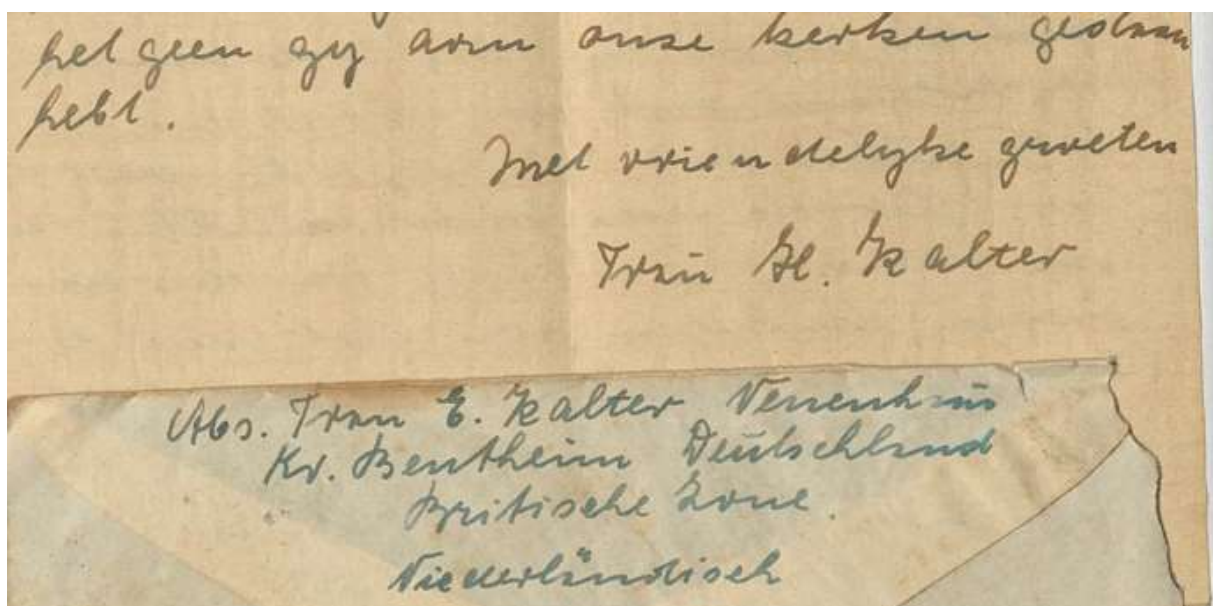 het geen gy aan onse kerken gedaan
hebt.
Met vriendelyke groeten
Frau H. Kalter
Abs. Frau E. Kalter Neuenhaus
Kr. Bentheim Deutschland
Britische Zone.
Niederländisch